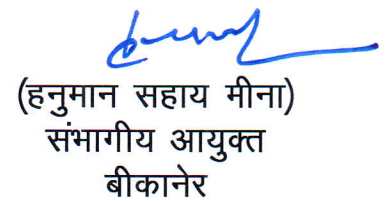 (हनुमान सहाय मीना)
संभागीय आयुक्त
बीकानेर